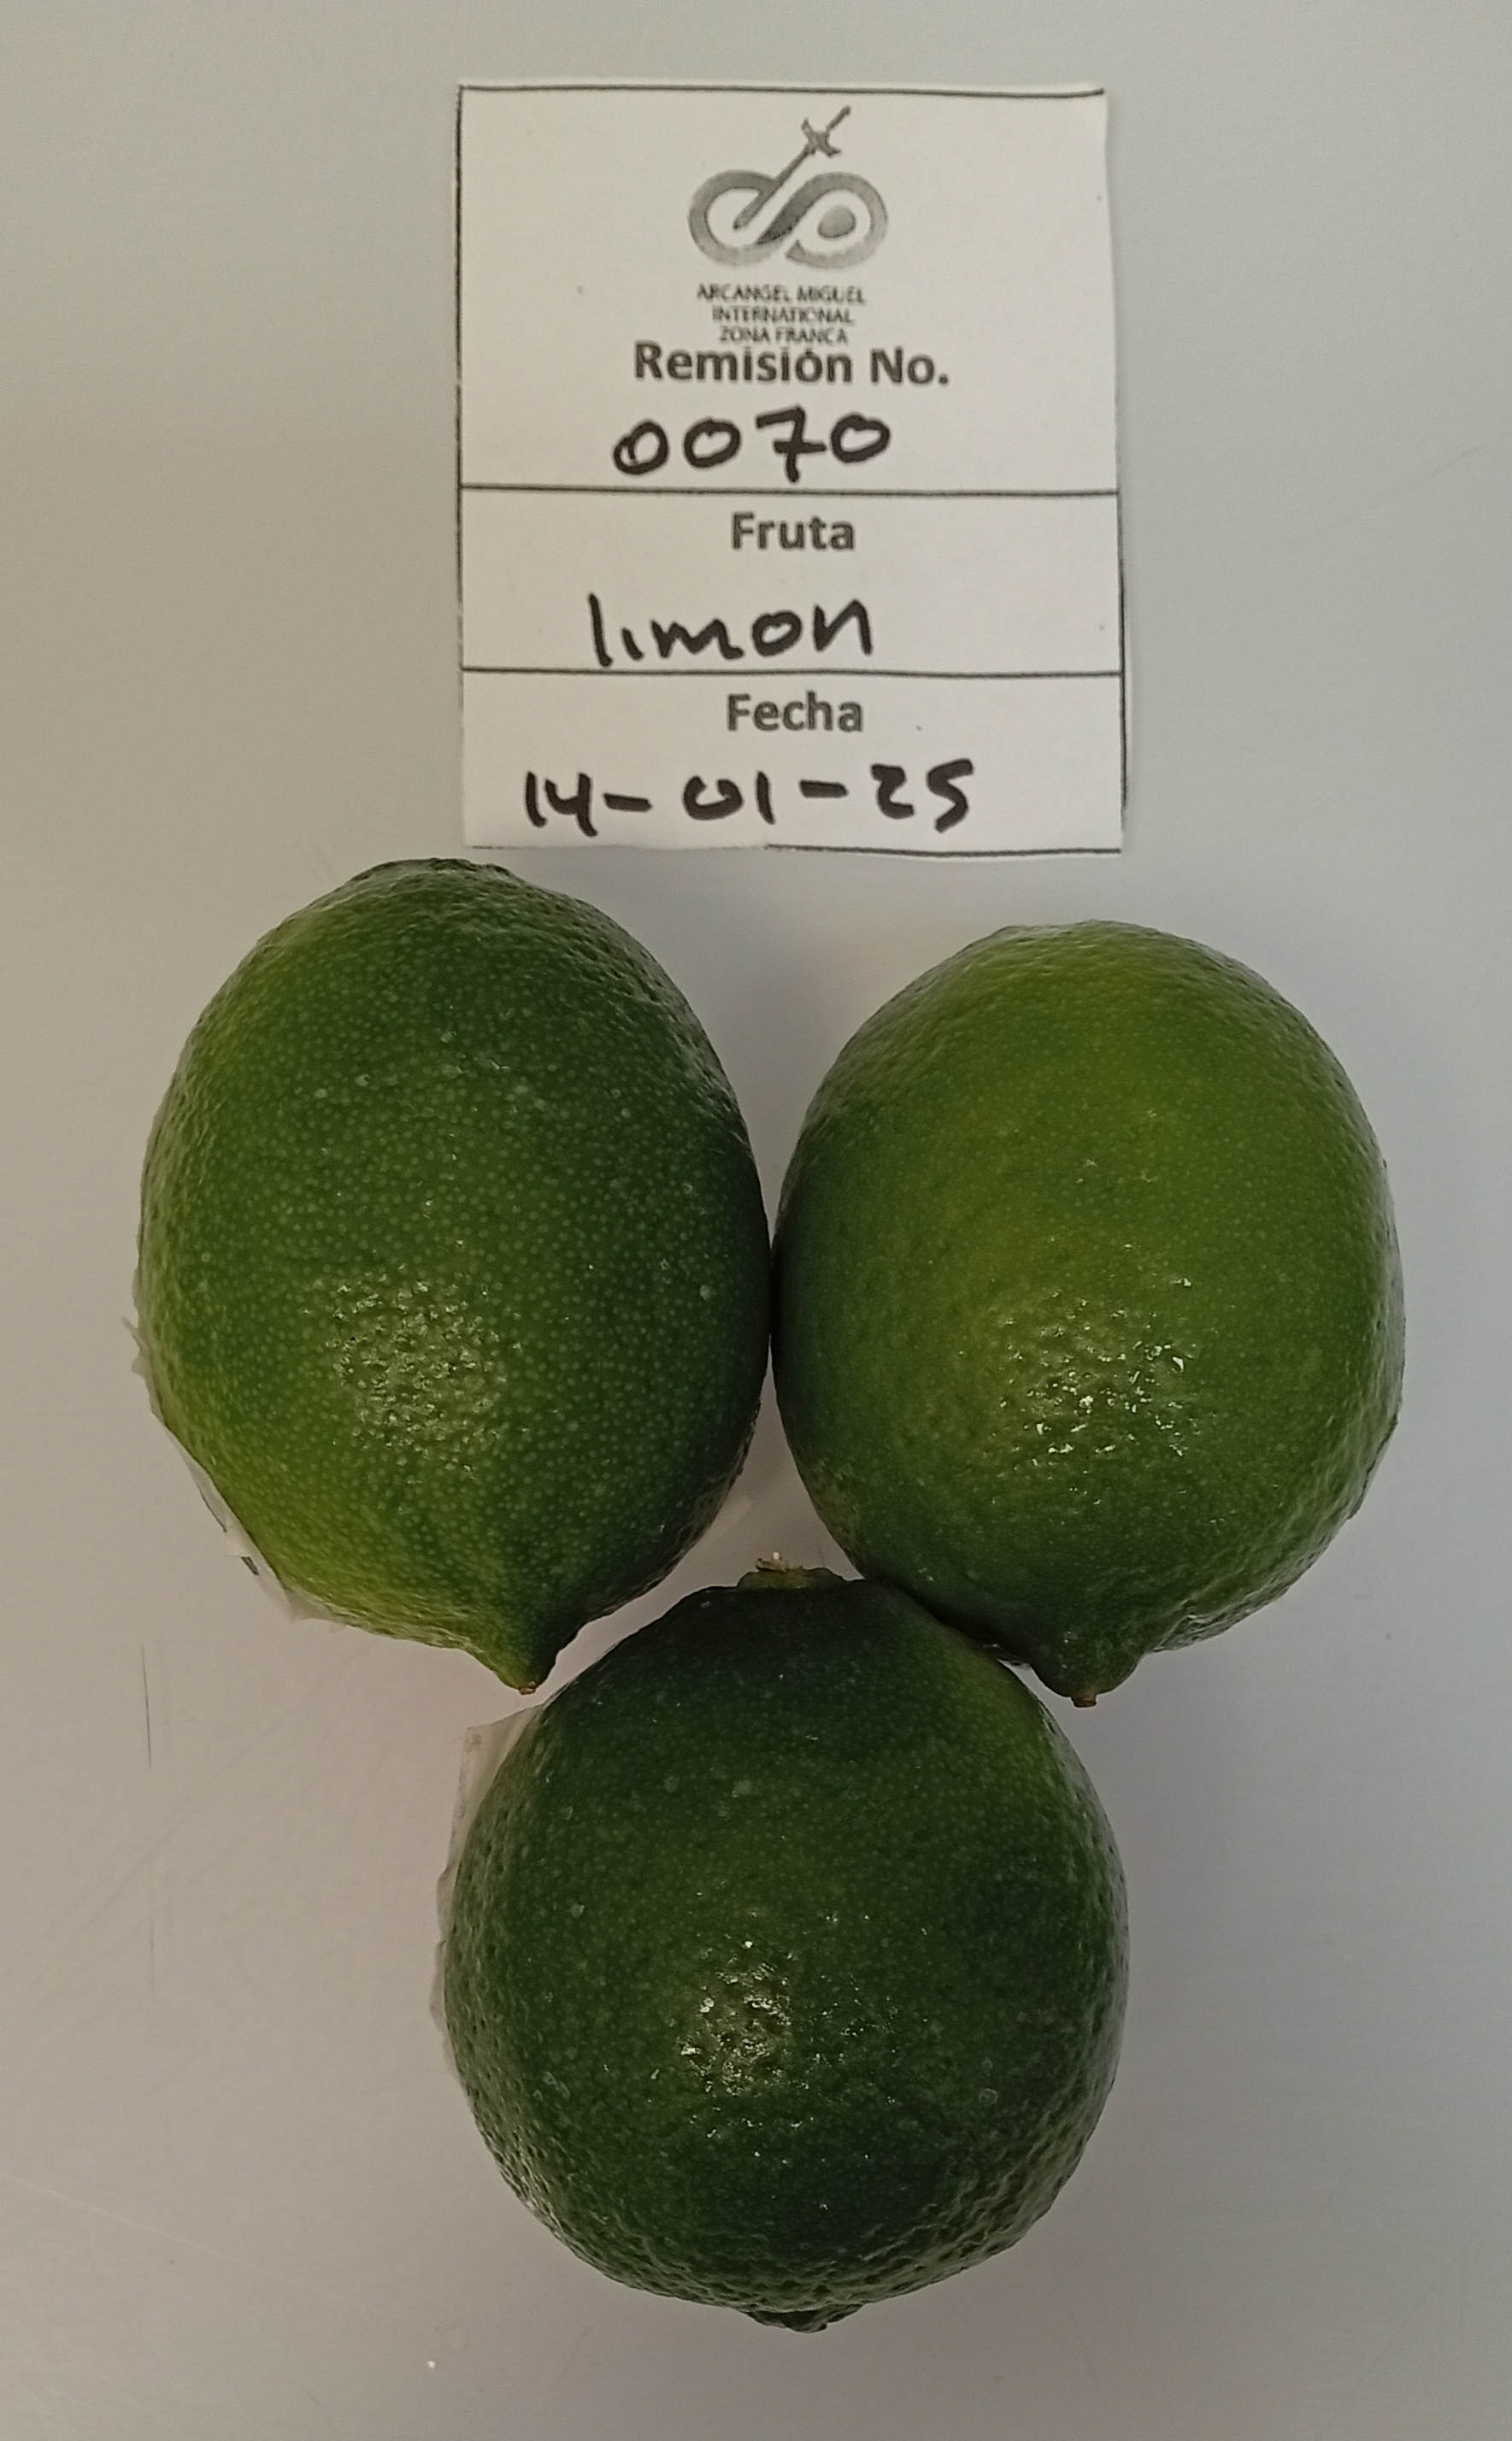 ARCANGEL MIGUEL
INTERNATIONAL
ZONA FRANCA
Remisión No.
0070
Fruta
limon
Fecha
14-01-25